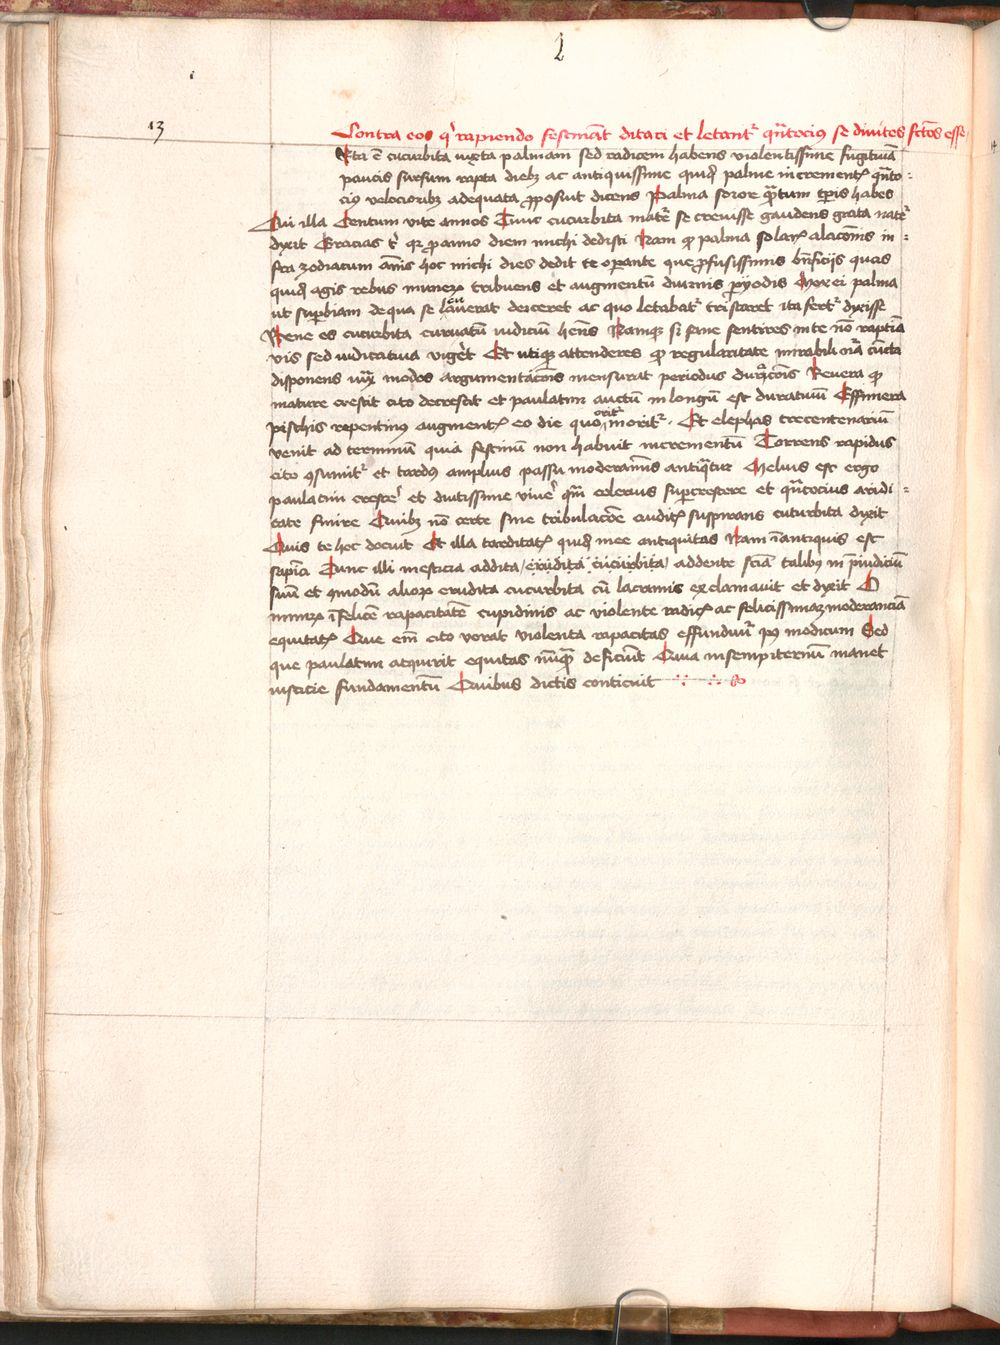 2
13
Contra eos q' rapiendo festināt ditari et letant᷑ qñtocius se diuites sctōs esse
Ata ē cucurbita iuxta palmam sed radicem habens violentissime fugitiuā
paucis sursum rapta dieb; ac antiquissime quidē palme incrementꝭ qñto-
cius velociorib; adequata ꝓposuit dicens Palma soror qñtum tp̄ris habes
Cui illa Centum vite annos Tunc cucurbita mat᷑ se creuisse gaudens grata nat᷑
dixit Gracias t' qꝛ pro anno diem michi dedisti Nam qd palma solarꝭ alacōnis in-
fra zodiacum anīs hoc michi dies dedit te oꝑante que ꝓfusissimis bn̄ficijs quas
quidē agis rebus munera tribuens et augmentū diurnis ꝑyodis Mox ei palma
ut suꝑbiam de qua se leuauerat deiceret ac quo letabat᷑ tristaret ita fert᷑ dixisse
Bene es cucurbita curuatū iudiciū hēns Namqꝫ si sane sentires in te nō raptiā
vis sed iudicatiua vigēt Et utiqꝫ attenderes qd regularitate mirabili oīa cūcta
disponens iux modos argumentacōis mensurat periodus duracōis Reuera qd
mature crescit cito decrescit et paulatim auctū in longū est duratuuū Effimera
piscis repentinus augmentꝭ eo die quo orit᷑ morit᷑. Et elephas trecentenariū
venit ad terminū quia festinū non habuit incrementū Torrens rapidus
cito ꝯsumit᷑ et tardus amplius passu moderamīs antiqᷓtur Melius est ergo
paulatim crescē' et diutissime viuē' qm̄ celerius suꝑcrescere et qñtocius aridi-
tate finire Quib; nō certe sine tribulacōe auditꝭ suspirans cucurbita dixit
Quis te hoc docuit Et illa tarditatꝭ quidē mee antiquitas Nam ī antiquis est
sapīcia Tunc illi mesticia addita / erudita cucurbita / addente sciā talibus in p̄iudiciū
suū et qmodū alioꝝ erudita cucurbita cū lacrimis exclamauit et dixit O
nimirꝫ īfelicē rapacitatē cupidinis ac violente radicꝭ ac felicissimaꝫ moderanciā
equitatꝭ Que em̄ cito vorat violenta rapacitas effundūt᷑ pꝰ modicum Sed
que paulatim acquirit equitas nūqᷓ deficiūt Quia in sempiternū manet
iusticie fundamentū Quibus dictis conticuit